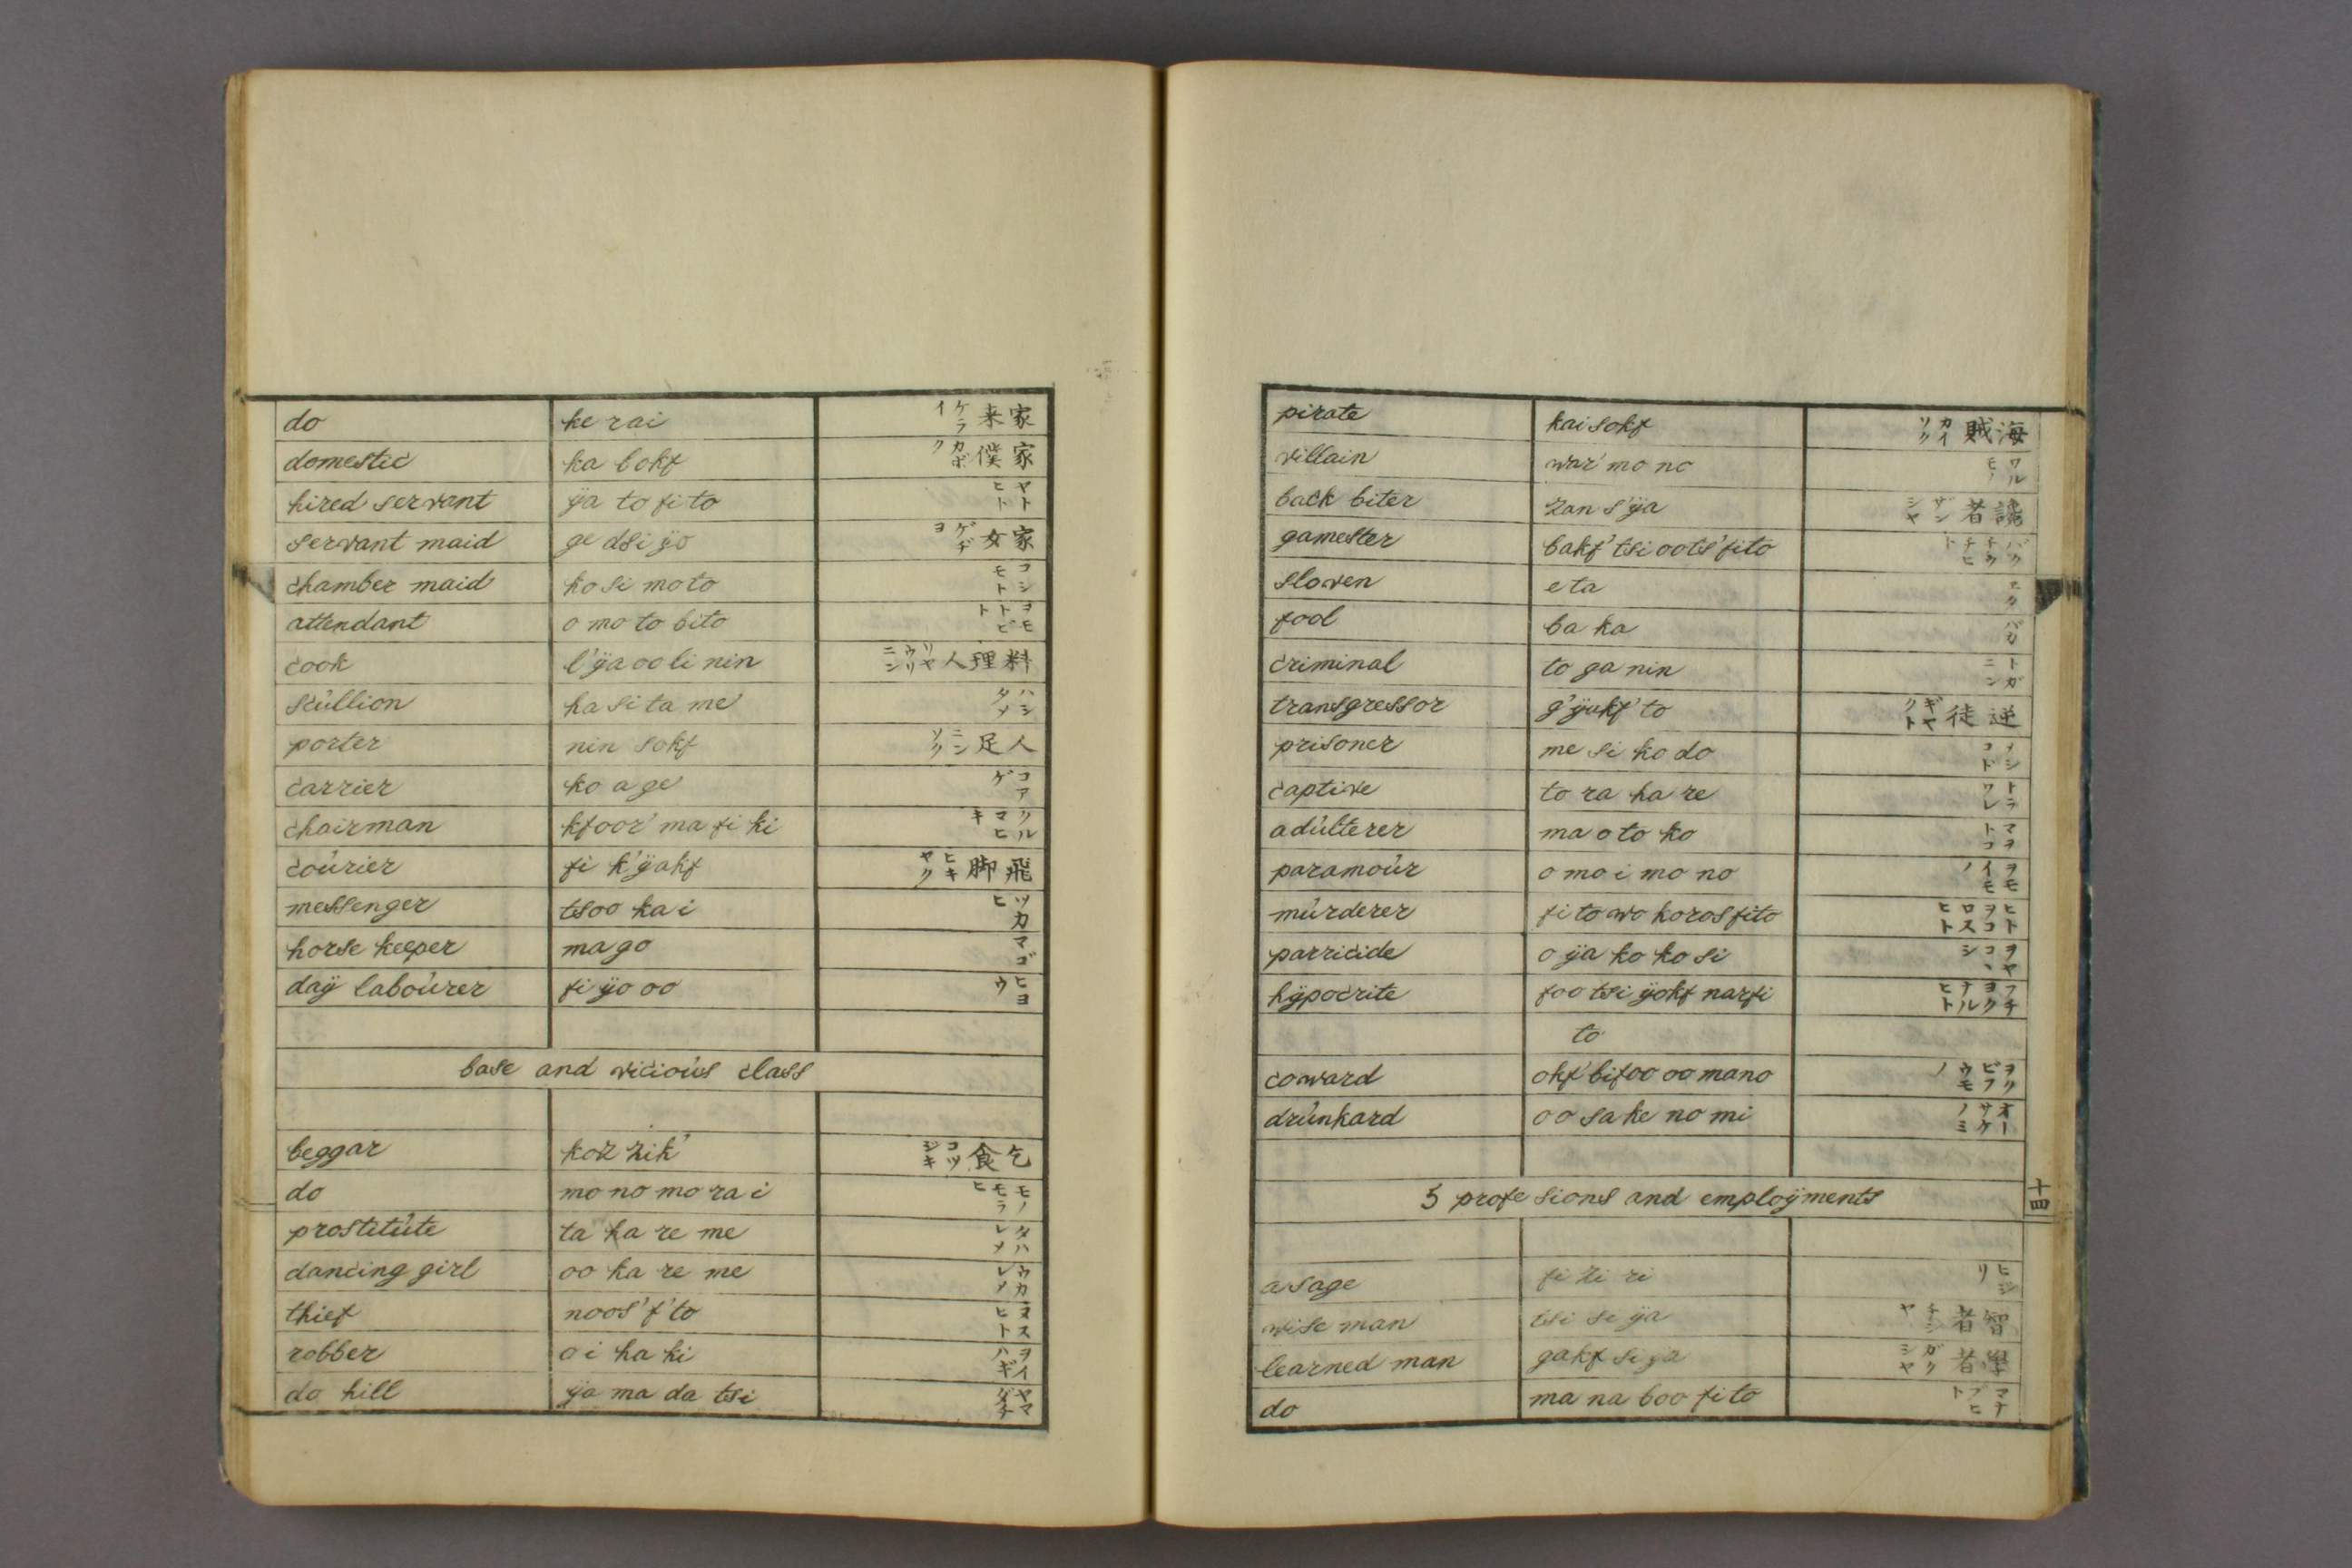 do ke rai 家来 ケライ
domestic ka bokf 家僕 カボク
hired servant ÿa to fi to ヤトヒト
servant maid ge dsi ÿo 家女 ゲヂヨ
chamber maid ko si mo to コシモト
attendant o mo to bito ヲモトビト
cook l'ÿa oo li nin 料理人 リヤウリニン
scullion ha si ta me ハシタメ
porter nin sokf 人足 ニンソク
carrier ko a ge コアゲ
chairman kfoor' ma fi ki クルマヒキ
courier fi k'ÿakf 飛脚 ヒキヤク
messenger tsoo ka i ツカヒ
horse keeper ma go マゴ
daÿ labourer fi ÿo oo ヒヨウ
base and vicious class
beggar koz zik' 乞食 コツジキ
do mo no mo ra i モノモラヒ
prostitute ta ha re me タハレメ
dancing girl oo ka re me ウカレメ
thief noos'f'to ヌスヒト
robber o i ha ki ヲイハギ
do hill ÿa ma da tsi ヤマダチ
pirate kai sokf 海賊 カイソク
villain war' mo no ワルモノ
back biter zan s'ÿa 讒者 ザンシヤ
gamester bakf' tsi oots' fito バクチウチヒト
sloven e ta エタ
fool ba ka バカ
criminal to ga nin トガニン
transgressor g'ÿakf' to 逆徒 ギヤクト
prisoner me si ko do メシコド
captive to ra ha re トラワレ
adulterer ma o to ko マヲトコ
paramour o mo i mo no ヲモイモノ
murderer fi to wo koros fito ヒトヲコロスヒト
parricide o ÿa ko ko si ヲヤコヽシ
hÿpocrite foo tsi ÿokf narfi フチヨクナルヒト
to
coward okf' bifoo oo mano ヲクビフウモノ
drunkard oo sa ke no mi オーサケノミ
十四
5 profe sions and emploÿments
a sage fi zi ri ヒジリ
wise man tsi se ÿa 智者 チシヤ
learned man gakf si ÿa 學者 ガクシヤ
do ma na boo fi to マナブヒト